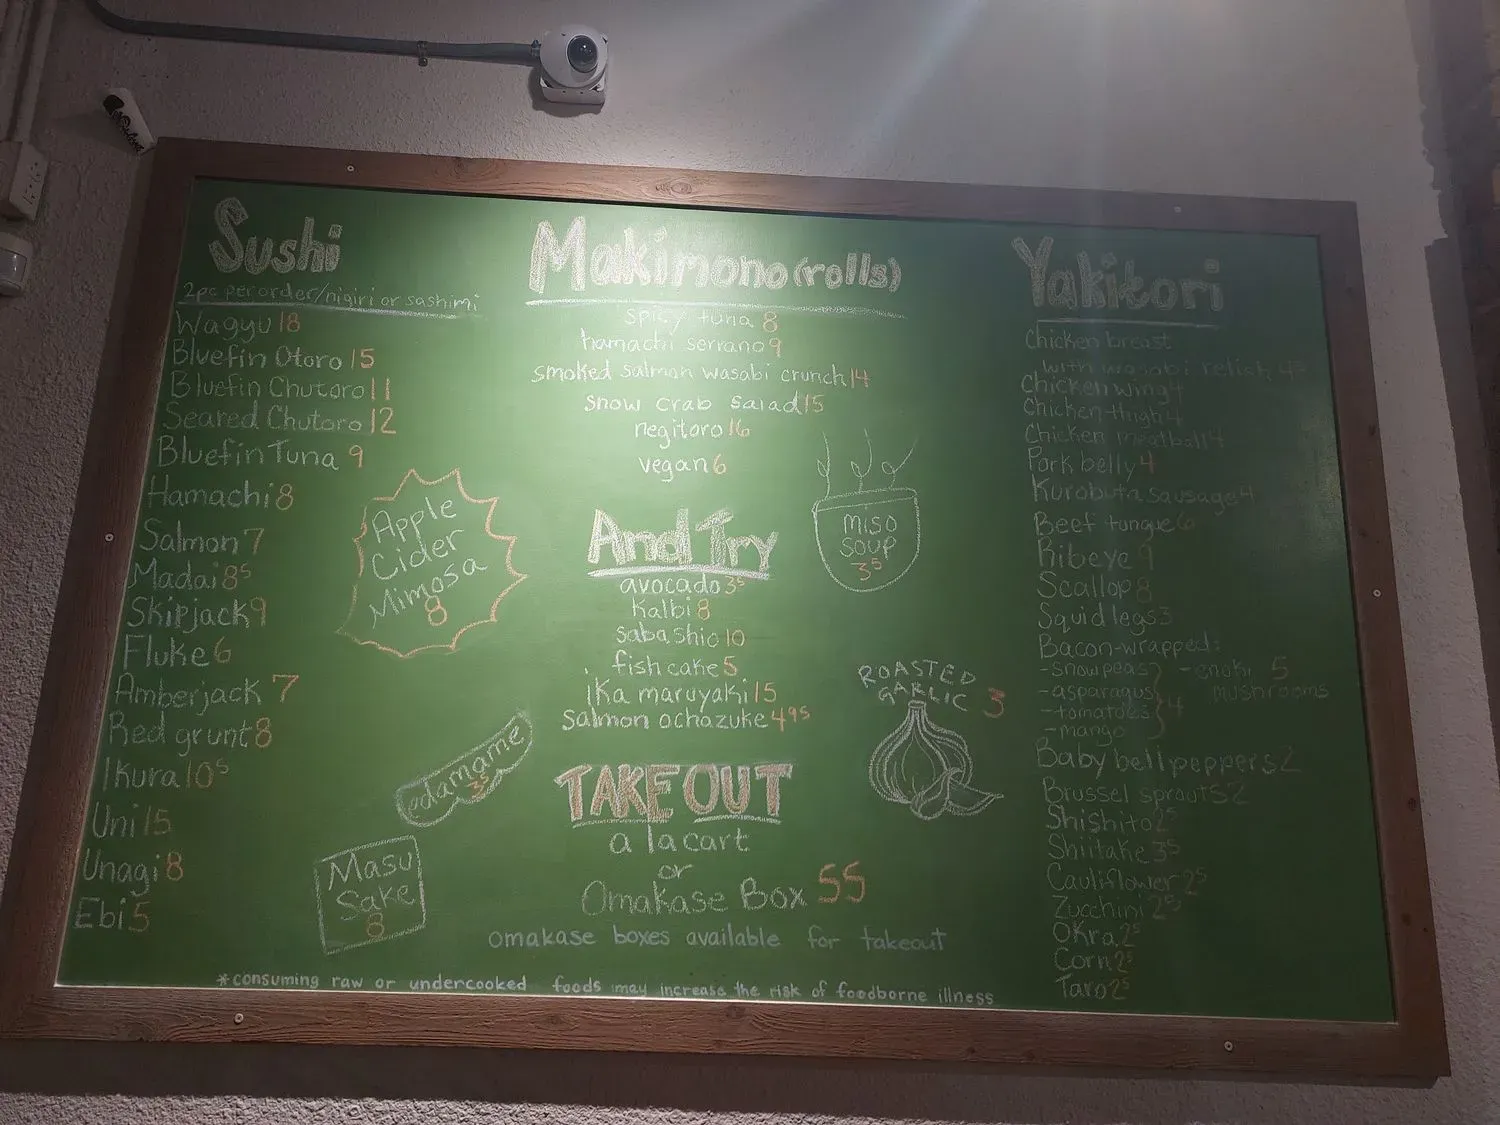 Sushi
2pc per order/nigiri or sashimi
Wagyu 18
Bluefin Otoro 15
Bluefin Chutoro 11
Seared Chutoro 12
Bluefin Tuna 9
Hamachi 8
Salmon 7
Madai 8⁵
Skipjack 9
Fluke 6
Amberjack 7
Red grunt 8
Ikura 10⁵
Uni 15
Unagi 8
Ebi 5
Apple
Cider
Mimosa
8
edamame
3⁵
Masu
Sake
8
Makimono (rolls)
spicy tuna 8
hamachi serrano 9
smoked salmon wasabi crunch 14
snow crab salad 15
negitoro 16
vegan 6
MISO
SOUP
3⁵
And Try
avocado 3⁵
Kalbi 8
saba shio 10
fish cake 5
ika maruyaki 15
salmon ochazuke 4⁹⁵
ROASTED
GARLIC 3
TAKE OUT
a la cart
or
Omakase Box 55
omakase boxes available for takeout
*consuming raw or undercooked foods may increase the risk of foodborne illness
Yakitori
Chicken breast
with wasabi relish
Chicken wing 4
Chicken thigh 4
Chicken meatball 4
Pork belly 4
Kurobuta sausage 4
Beef tongue 6
Ribeye 9
Scallop 8
Squid legs 3
Bacon-wrapped:
-snowpeas -enoki 5
-asparagus mushrooms
-tomatoes 4
-mango
Baby bell peppers 2
Brussel sprouts 2
Shishito 2⁵
Shiitake 3⁵
Cauliflower 2⁵
Zucchini 2⁵
Okra 2⁵
Corn 2⁵
Taro 2⁵